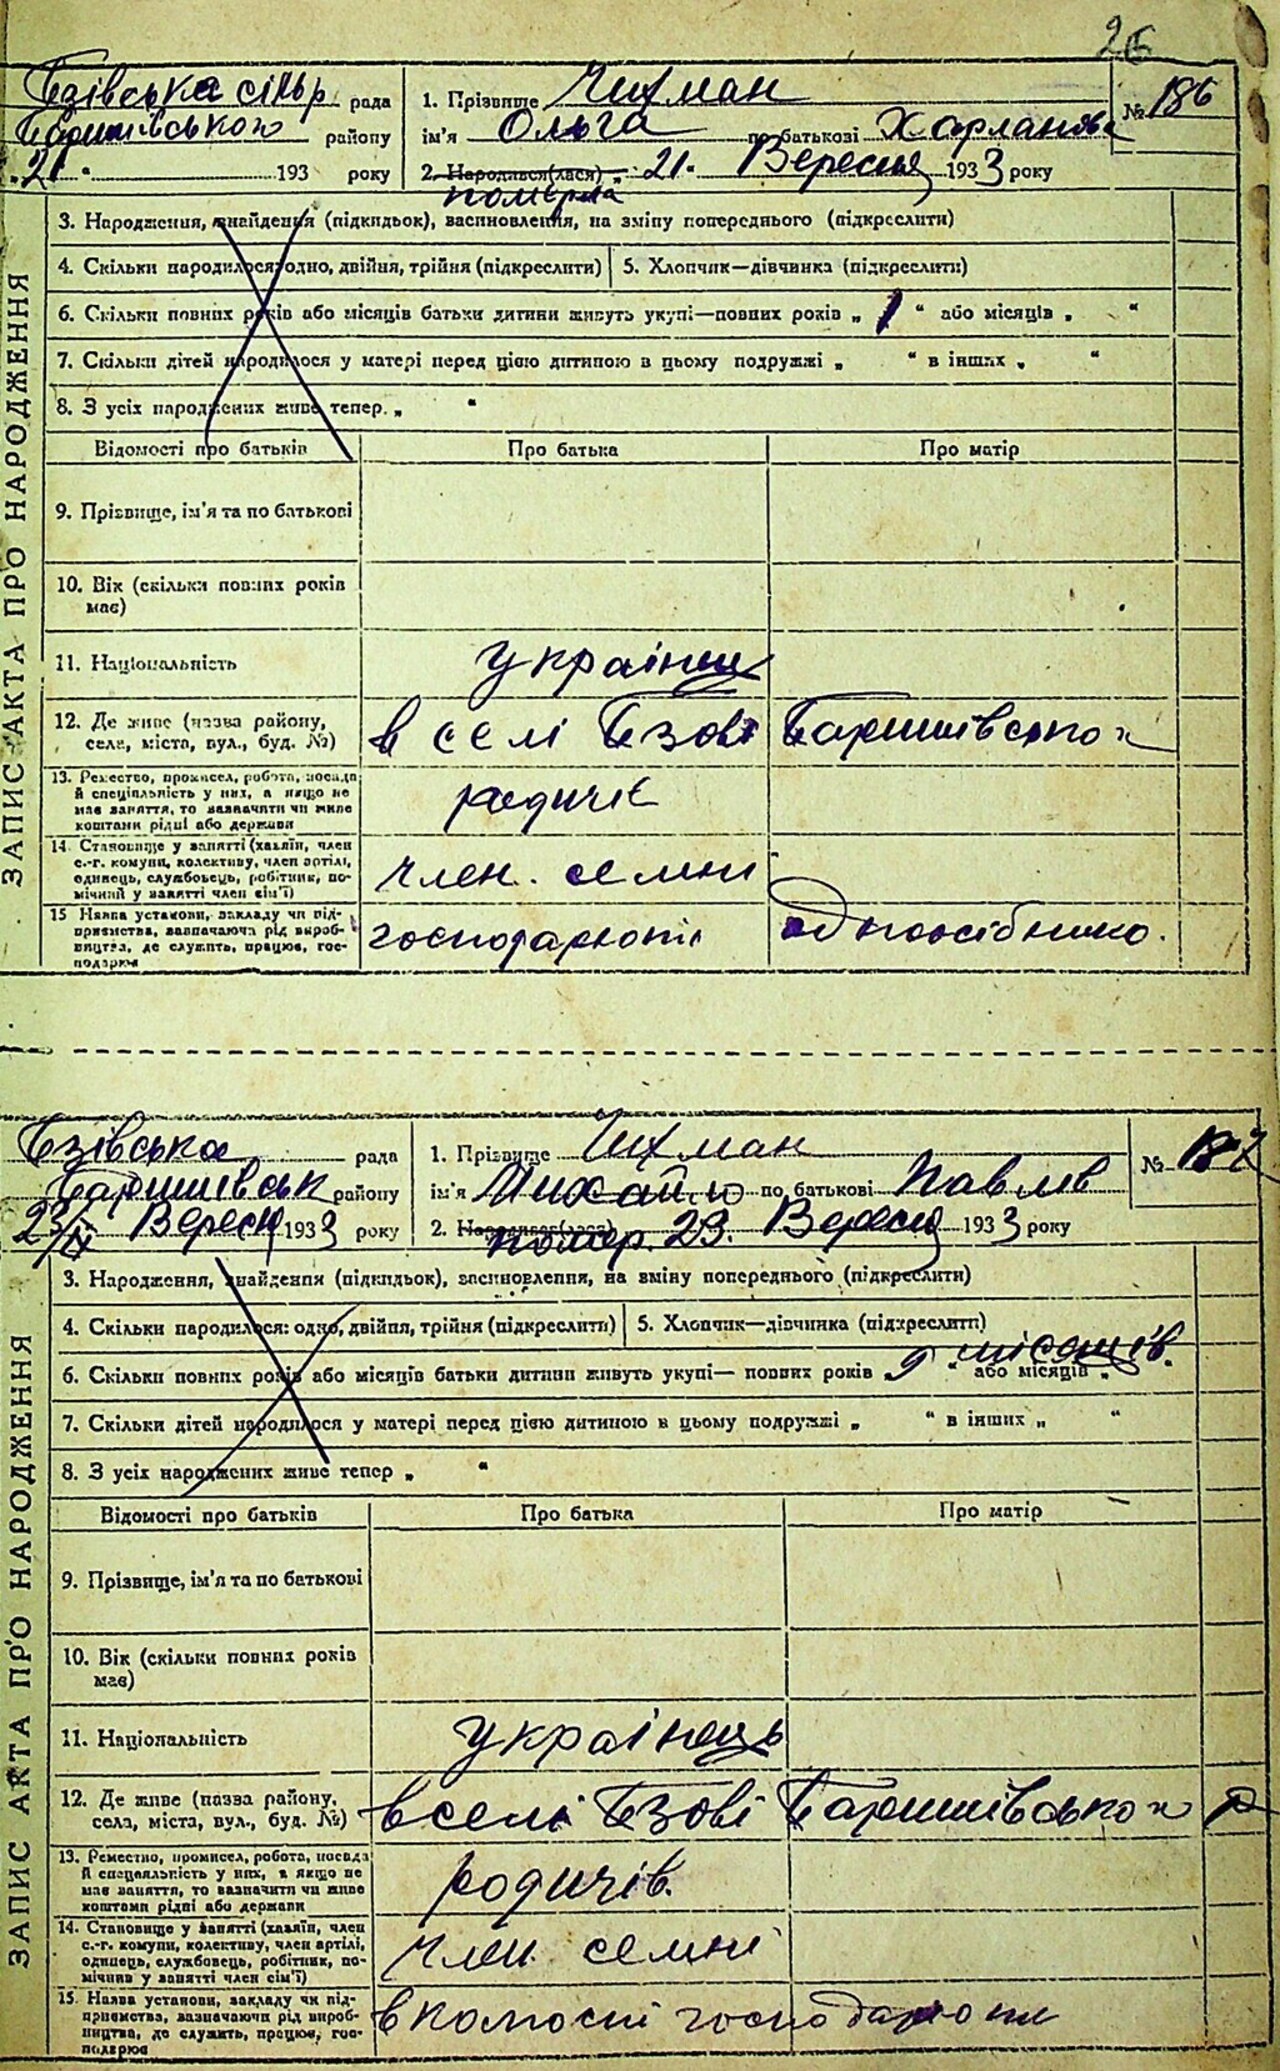 26
Бзівська сільр рада
Баришівського району
„21“ 193 року
1. Прізвище Чихман
ім'я Ольга по батькові
2. Народився(лася) „21. Вересня 1933 року
померла
№ 186
ЗАПИС АКТА ПРО НАРОДЖЕННЯ
3. Народження, знайдення (підкидьок), засиновлення, на зміну попереднього (підкреслити)
4. Скільки народилося: одно, двійня, трійня (підкреслити) 5. Хлопчик—дівчинка (підкреслити)
6. Скільки повних років або місяців батьки дитини живуть укупі—повних років „ 1 “ або місяців „ “
7. Скільки дітей народилося у матері перед цією дитиною в цьому подружжі „ “ в інших „ “
8. З усіх народжених живе тепер „ “
Відомості про батьків Про батька Про матір
9. Прізвище, ім'я та по батькові
10. Вік (скільки повних років
має)
11. Національність
12. Де живе (назва району,
села, міста, вул., буд. №) в селі Бзові Баришівського
13. Ремество, промисел, робота, посада
й спеціяльність у них, а якщо не
має заняття, то зазначити чи живе
коштами рідні або держави
14. Становище у занятті (хазяїн, член
с.-г. комуни, колективу, член артілі,
одинець, службовець, робітник, по-
мічний у занятті член сім'ї) член. семии
15 Назва установи, закладу чи під-
приємства, зазначаючи рід вироб-
ництва, де служить, працює, гос-
подарює
Бзівська рада
Баришівськ району
23/IX Вересня 1933 року
1. Прізвище Чихман
ім'я Михайло по батькові Павлів
2. Народився(лася) помер. 23. Вересня 1933 року
№ 187
ЗАПИС АКТА ПРО НАРОДЖЕННЯ
3. Народження, знайдення (підкидьок), засиновлення, на зміну попереднього (підкреслити)
4. Скільки народилося: одно, двійня, трійня (підкреслити) 5. Хлопчик—дівчинка (підкреслити)
6. Скільки повних років або місяців батьки дитини живуть укупі— повних років „ 9 “ місяців. або місяців „
7. Скільки дітей народилося у матері перед цією дитиною в цьому подружжі „ “ в інших „ “
8. З усіх народжених живе тепер „ “
Відомості про батьків Про батька Про матір
9. Прізвище, ім'я та по батькові
10. Вік (скільки повних років
має)
11. Національність українець
12. Де живе (назва району,
села, міста, вул., буд. №) в селі Бзові Баришівського р
13. Ремество, промисел, робота, посада
й спеціяльність у них, а якщо не
має заняття, то зазначити чи живе
коштами рідні або держави родичів.
14. Становище у занятті (хазяїн, член
с.-г. комуни, колективу, член артілі,
одинець, службовець, робітник, по-
мічник у занятті член сім'ї) член семиї
15. Назва установи, закладу чи під-
приємства, зазначаючи рід вироб-
ництва, де служить, працює, гос-
подарює